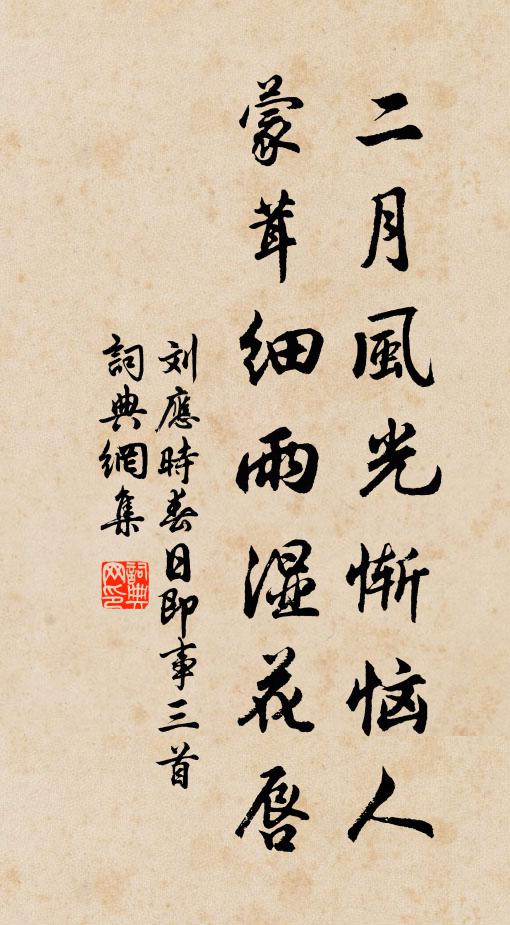 二月風光渐恼人
蒙茸細雨湿花唇
刘應時春日即事三首
詞典網集
詞典网印